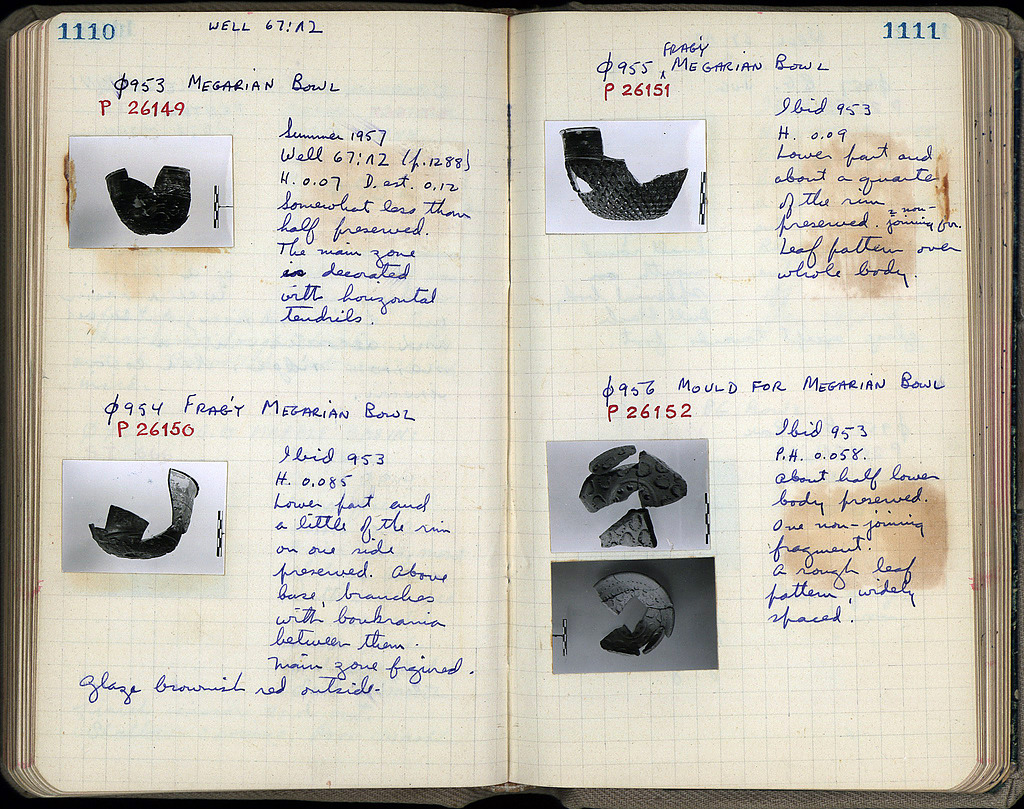 1110
WELL 67:Λ2
φ953 MEGARIAN BOWL
P 26149
Summer 1957
Well 67:Λ2 (p.1288)
H. 0.07 D. est. 0.12
Somewhat less than
half preserved.
The main zone
is decorated
with horizontal
tendrils.
φ954 FRAG'Y MEGARIAN BOWL
P 26150
Ibid 953
H. 0.085
Lower part and
a little of the rim
on one side
preserved. Above
base, branches
with boukrania
between them.
Main zone figured.
Glaze brownish red outside.
1111
FRAG'Y
φ955 ‸ MEGARIAN BOWL
P 26151
Ibid 953
H. 0.09
Lower part and
about a quarter
of the rim
preserved. 2 non-
joining fr.
Leaf pattern over
whole body.
φ956 MOULD FOR MEGARIAN BOWL
P 26152
Ibid 953
P.H. 0.058.
About half lower
body preserved.
One non-joining
fragment.
A rough leaf
pattern, widely
spaced.